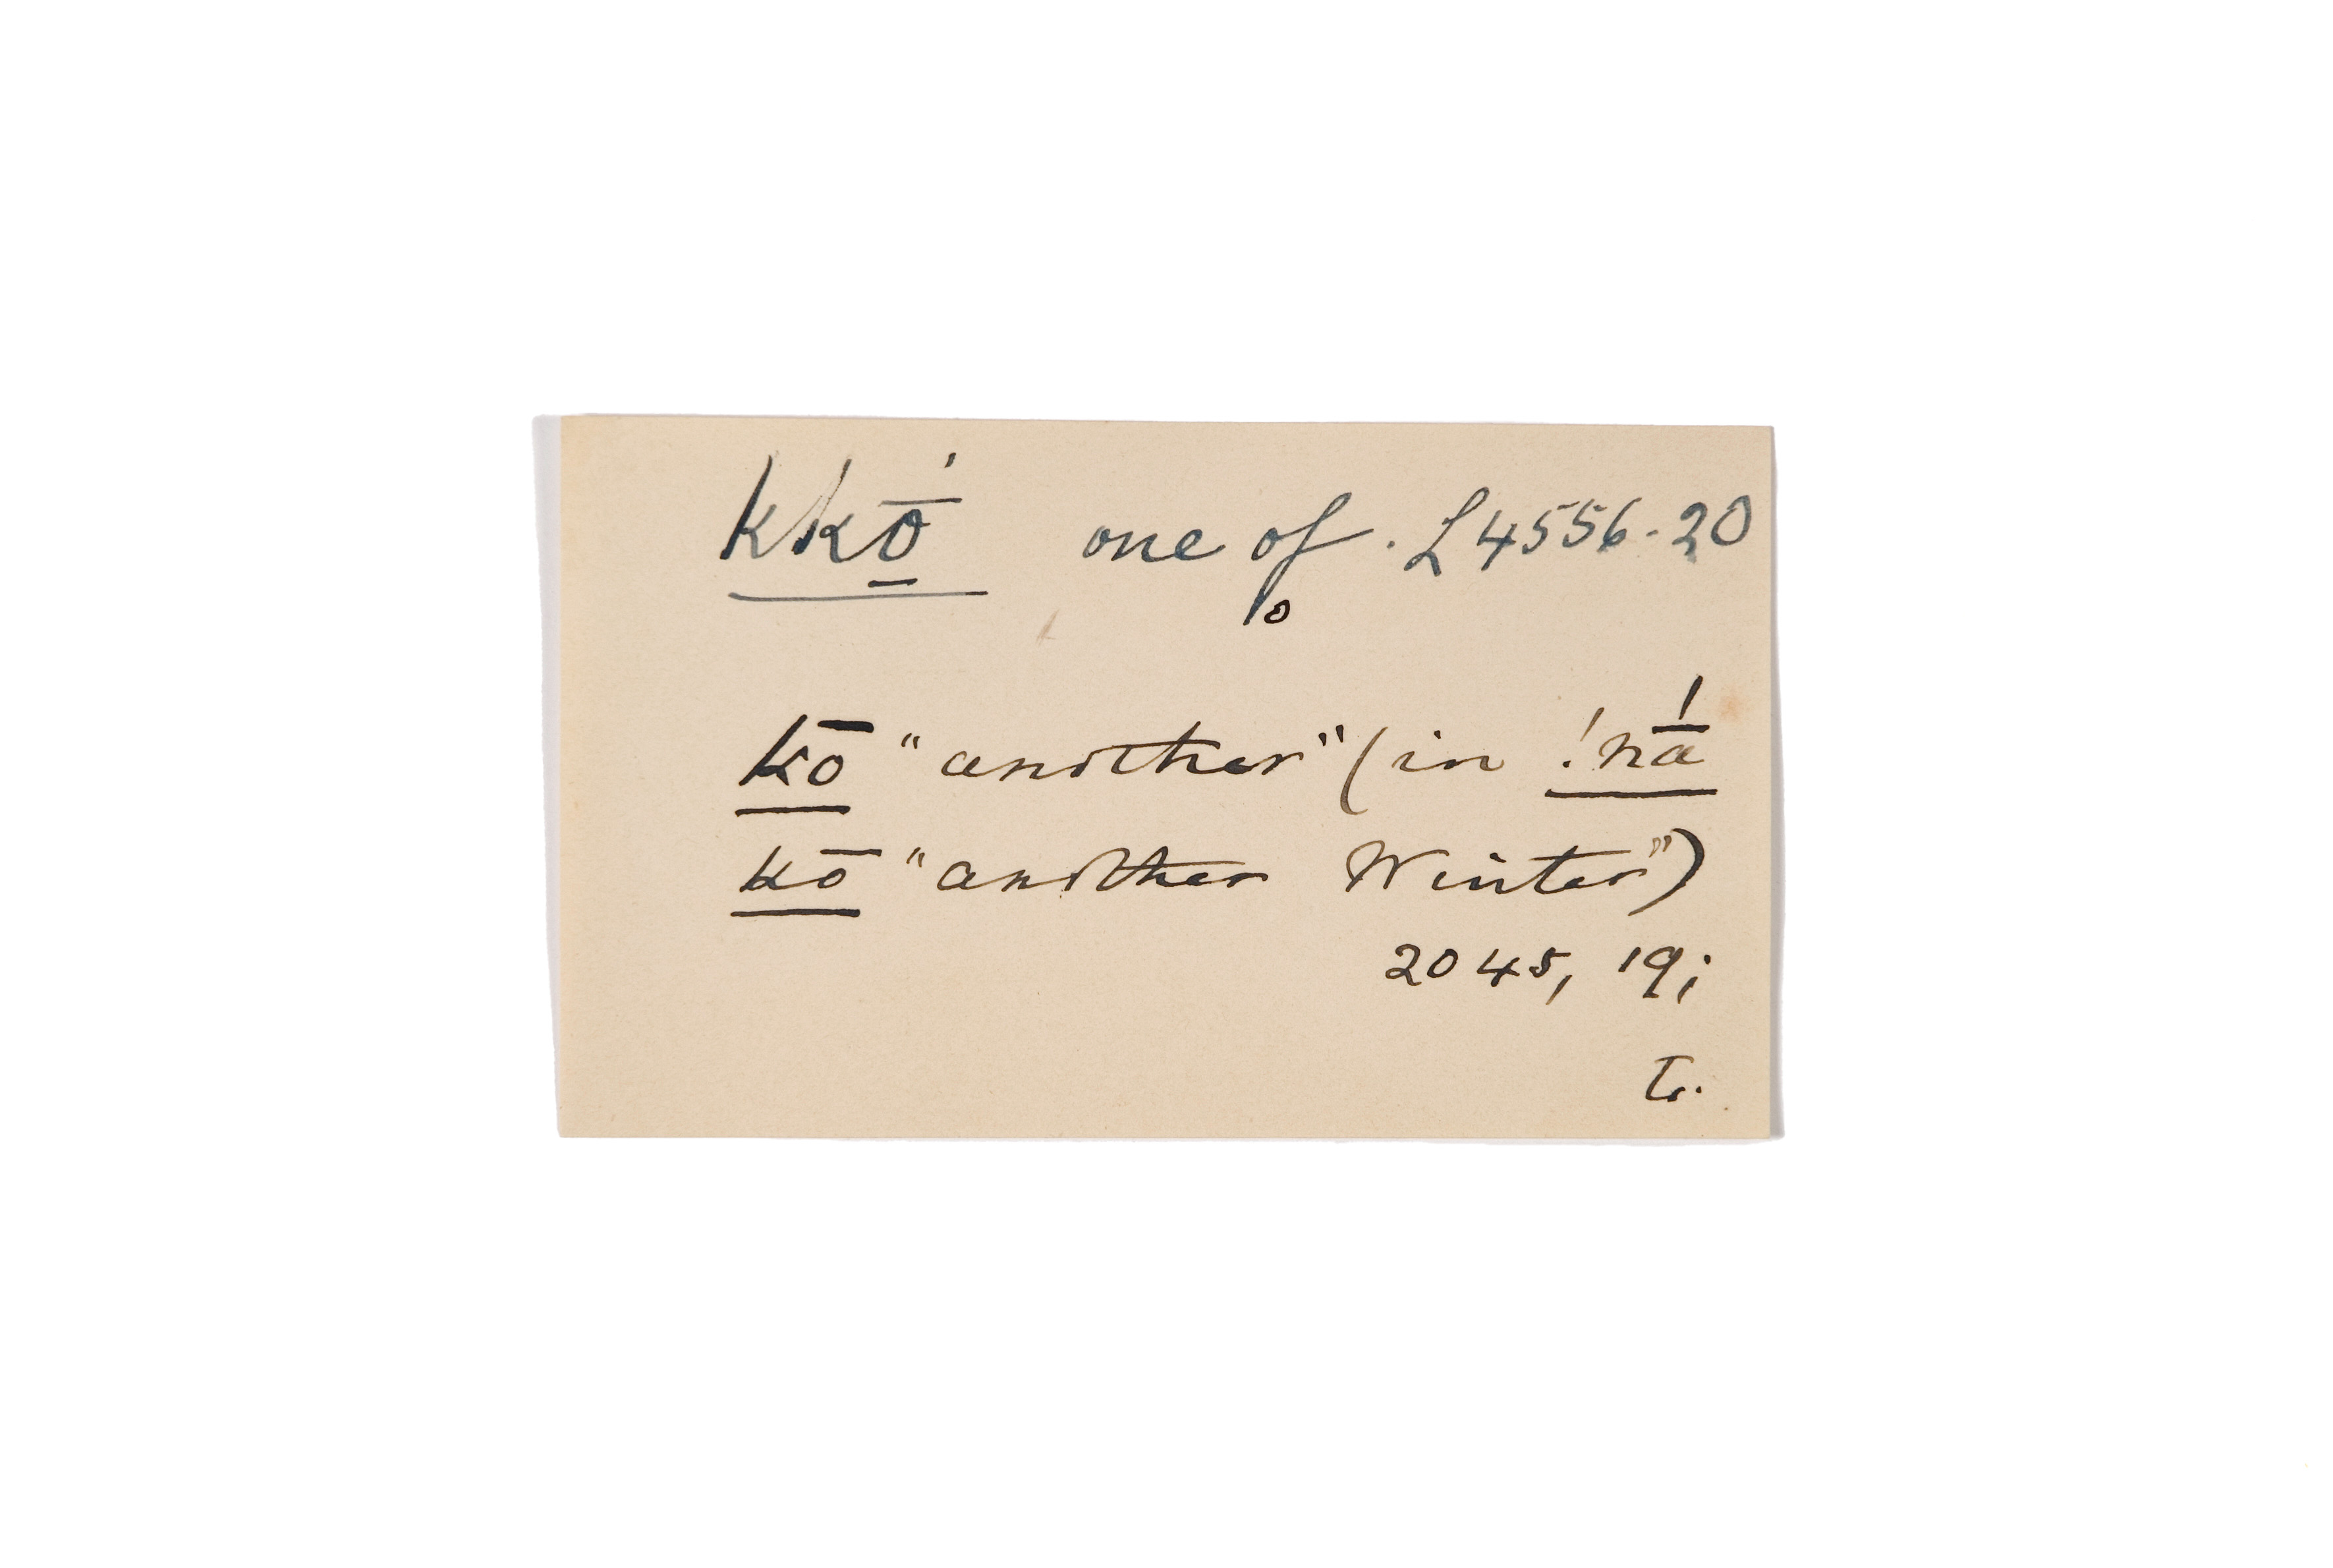 kkṓ̱ one of. L4556-20
kō "another" (in !nā́
kō "another Winter")
2045, 19;